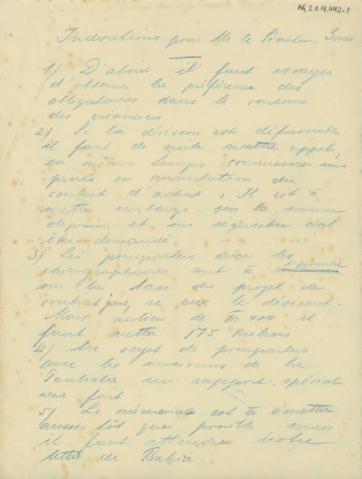 AG, 2.1.19.442-1
Indications pour Mr le Docteur
1) D'abord il faut essayer
d'obtenir la préférence des
obligataires dans le concours
des créanciers
2) Si la décision est défavorable
il faut de suite mettre appel
en même temps commencer un
procès en annulation du
contrat d'achat. Il est à
mettre embargo sur la somme
déposée et un sequestre doit
être demandé
3) Les pourparlers avec les
sont à
sur la base des projet de
contrat, si eux le désirent.
Mais au lieu de 500 il
faut mettre 175
4) Au sujet de pourparlers
avec les de la
un rapport spécial
sera fait
5) Le est à émettre
aussi tôt que possible mais
il faut attendre notre
lettre de Bahia.